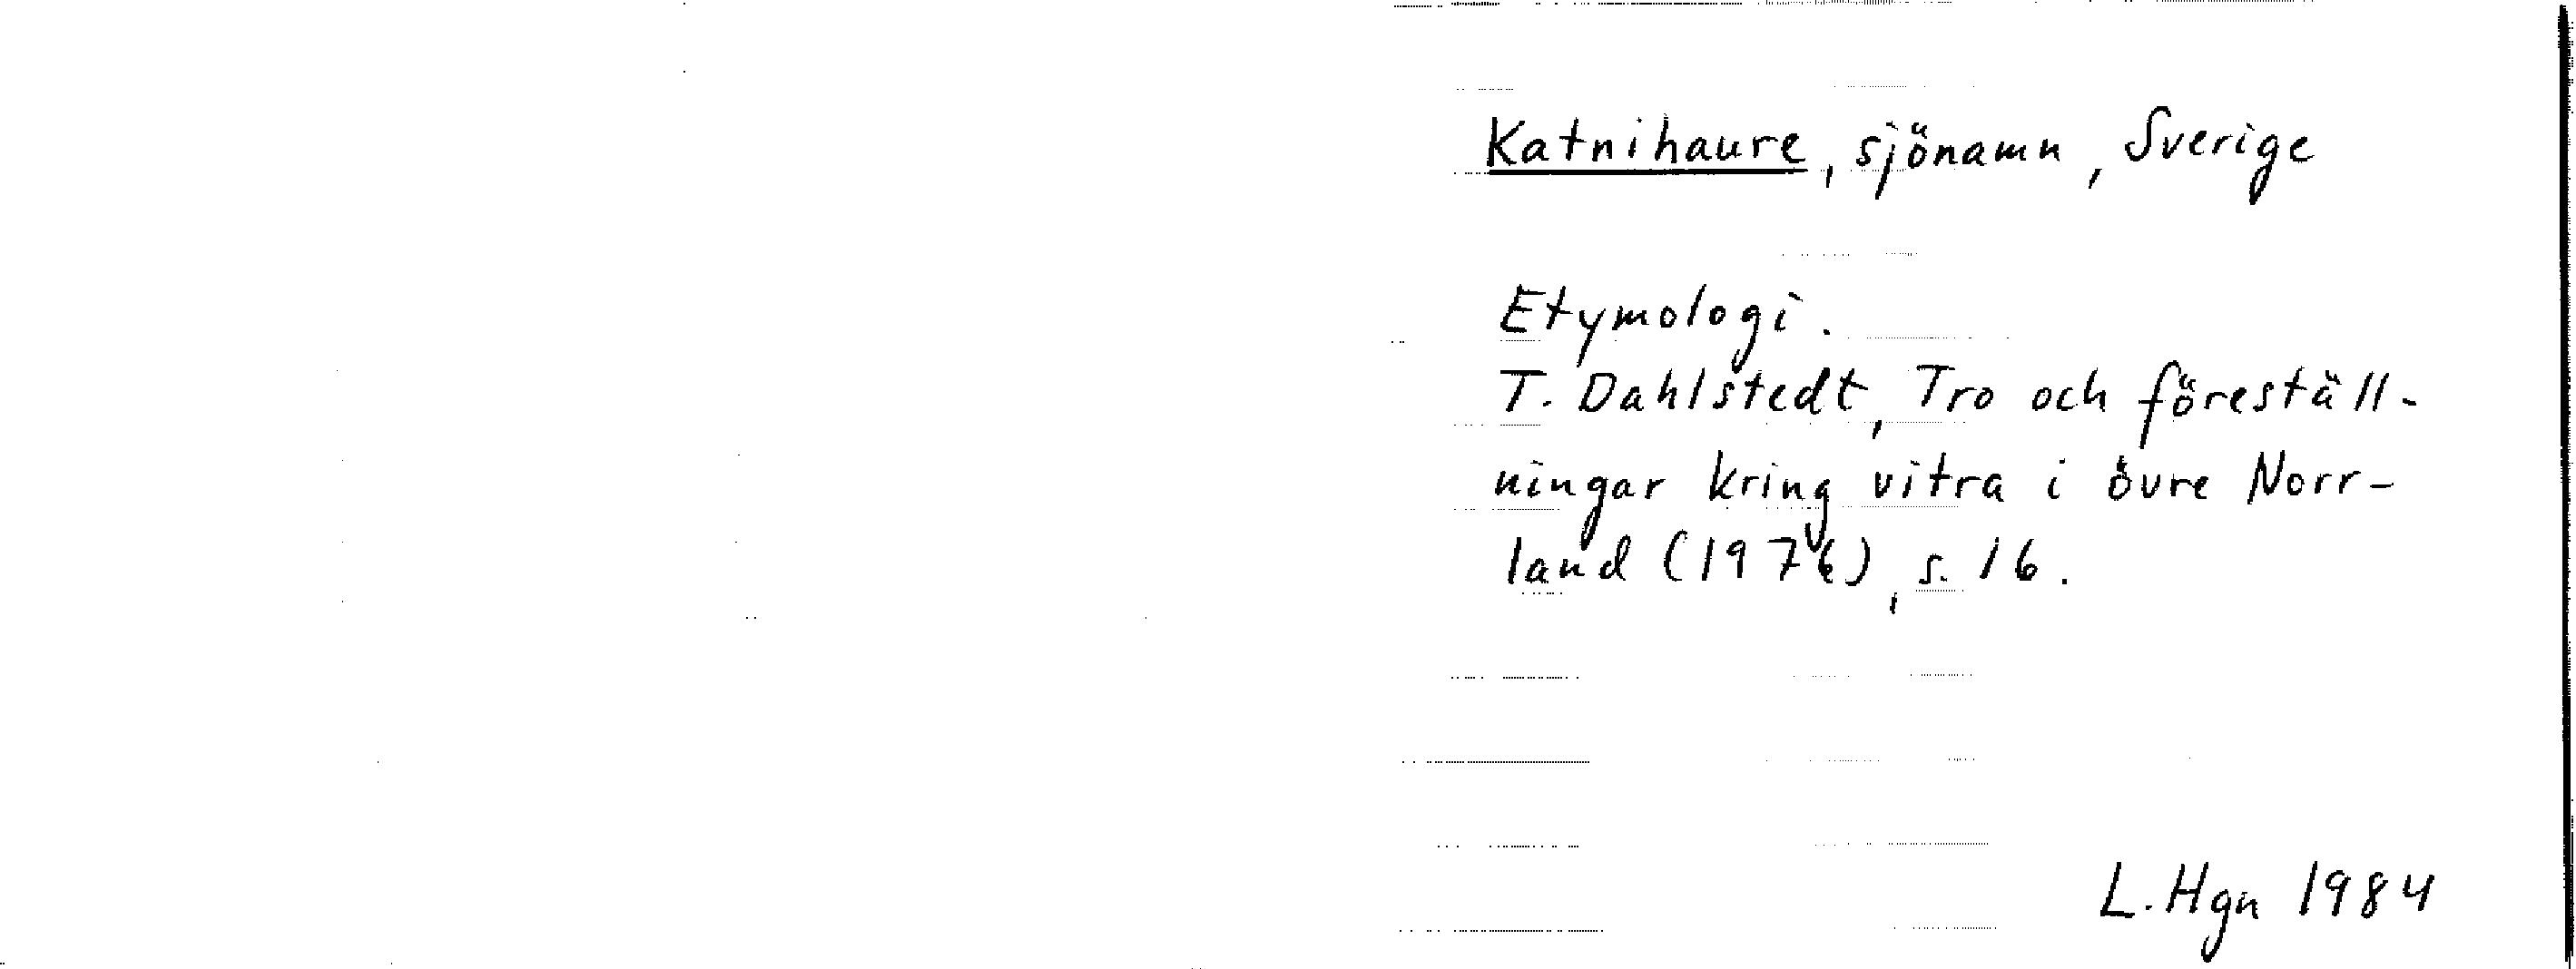 Katnihaure, sjönamn, Sverige
Etymologi.
T. Dahlstedt, Tro och föreställ-
ningar kring vitra i övre Norr-
land (1976), s. 16.
L. Hgn 1984